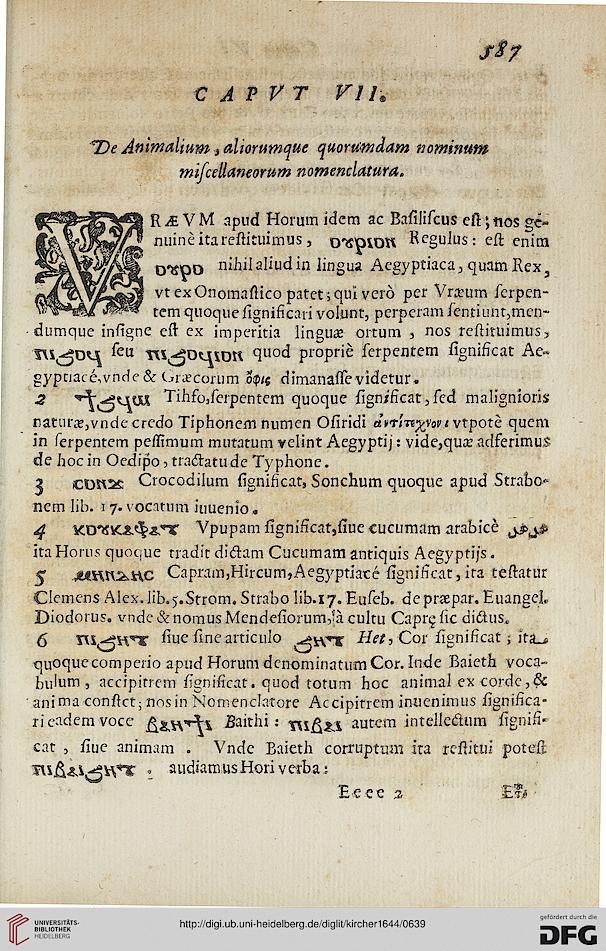 587
CAPVT VII.
De Animalium, aliorumque quorumdam nominum
miſcellaneorum nomenclatura.
VRÆVM apud Horum idem ac Baſiliſcus eſt; nos ge-
nuinè ita reſtituimus, ⲟⲩⲣⲓⲟⲛ Regulus: eſt enim
ⲟⲩⲣⲟ nihil aliud in lingua Aegyptiaca, quam Rex,
vt ex Onomaſtico patet; qui verò per Vræum ſerpen-
tem quoque ſignificari volunt, perperam ſentiunt, men-
dumque inſigne eſt ex imperitia linguæ ortum, nos reſtituimus,
ⲡⲓϩⲟϥ ſeu ⲡⲓϩⲟϥⲓⲟⲛ quod propriè ſerpentem ſignificat Ae-
gyptiacé, vnde & Græcorum ὄφις dimanaſſe videtur.
2 Tihſo, ſerpentem quoque ſignificat, ſed malignioris
naturæ, vnde credo Tiphonem numen Oſiridi ἀντίτεχνον vtpotè quem
in ſerpentem peſſimum mutatum velint Aegyptij: vide, quæ adferimus
de hoc in Oedipo, tractatu de Typhone.
3 Crocodilum ſignificat, Sonchum quoque apud Strabo-
nem lib. 17. vocatum inuenio.
4 ⲕⲟⲩⲕⲟⲩⲫⲁⲧ Vpupam ſignificat, ſiue cucumam arabicè
ita Horus quoque tradit dictam Cucumam antiquis Aegyptijs.
5 Capram, Hircum, Aegyptiacé ſignificat, ita teſtatur
Clemens Alex. lib. 5. Strom. Strabo lib. 17. Euſeb. de præpar. Euangel.
Diodorus. vnde & nomus Mendeſiorum, à cultu Caprę ſic dictus.
6 ⲡⲓϩⲏⲧ ſiue ſine articulo ϩⲏⲧ Het, Cor ſignificat; ita
quoque comperio apud Horum denominatum Cor. Inde Baieth voca-
bulum, accipitrem ſignificat. quod totum hoc animal ex corde, &
anima conſtet; nos in Nomenclatore Accipitrem inuenimus ſignifica-
ri eadem voce Baithi: ⲡⲓⲃⲁⲓ autem intellectum ſignifi-
cat, ſiue animam. Vnde Baieth corruptum ita reſtitui poteſt
ⲡⲓⲃⲁⲓϩⲏⲧ. audiamus Hori verba:
Eeee 2
UNIVERSITÄTS-
BIBLIOTHEK
HEIDELBERG
http://digi.ub.uni-heidelberg.de/diglit/kircher1644/0639
gefördert durch die
DFG